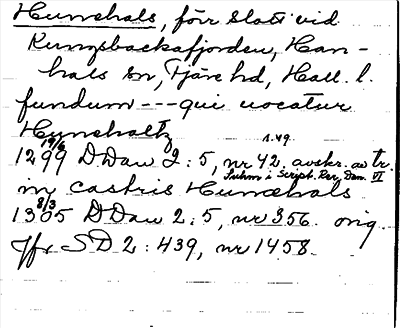 Hunehals, förr slott vid
Kungsbackafjorden, Han-
hals sn, Fjäre hd, Hall. l.
fundum --- qui uocatur
Hunehaltz
19/6 s. 49.
1299 DDan 2:5, nr 42. avskr. av tr.
i Script. Rer. Dan. VI
in castris Hunæhals
8/3
1305 DDan 2:5, nr 356. orig.
Jfr SD 2:439, nr 1458.